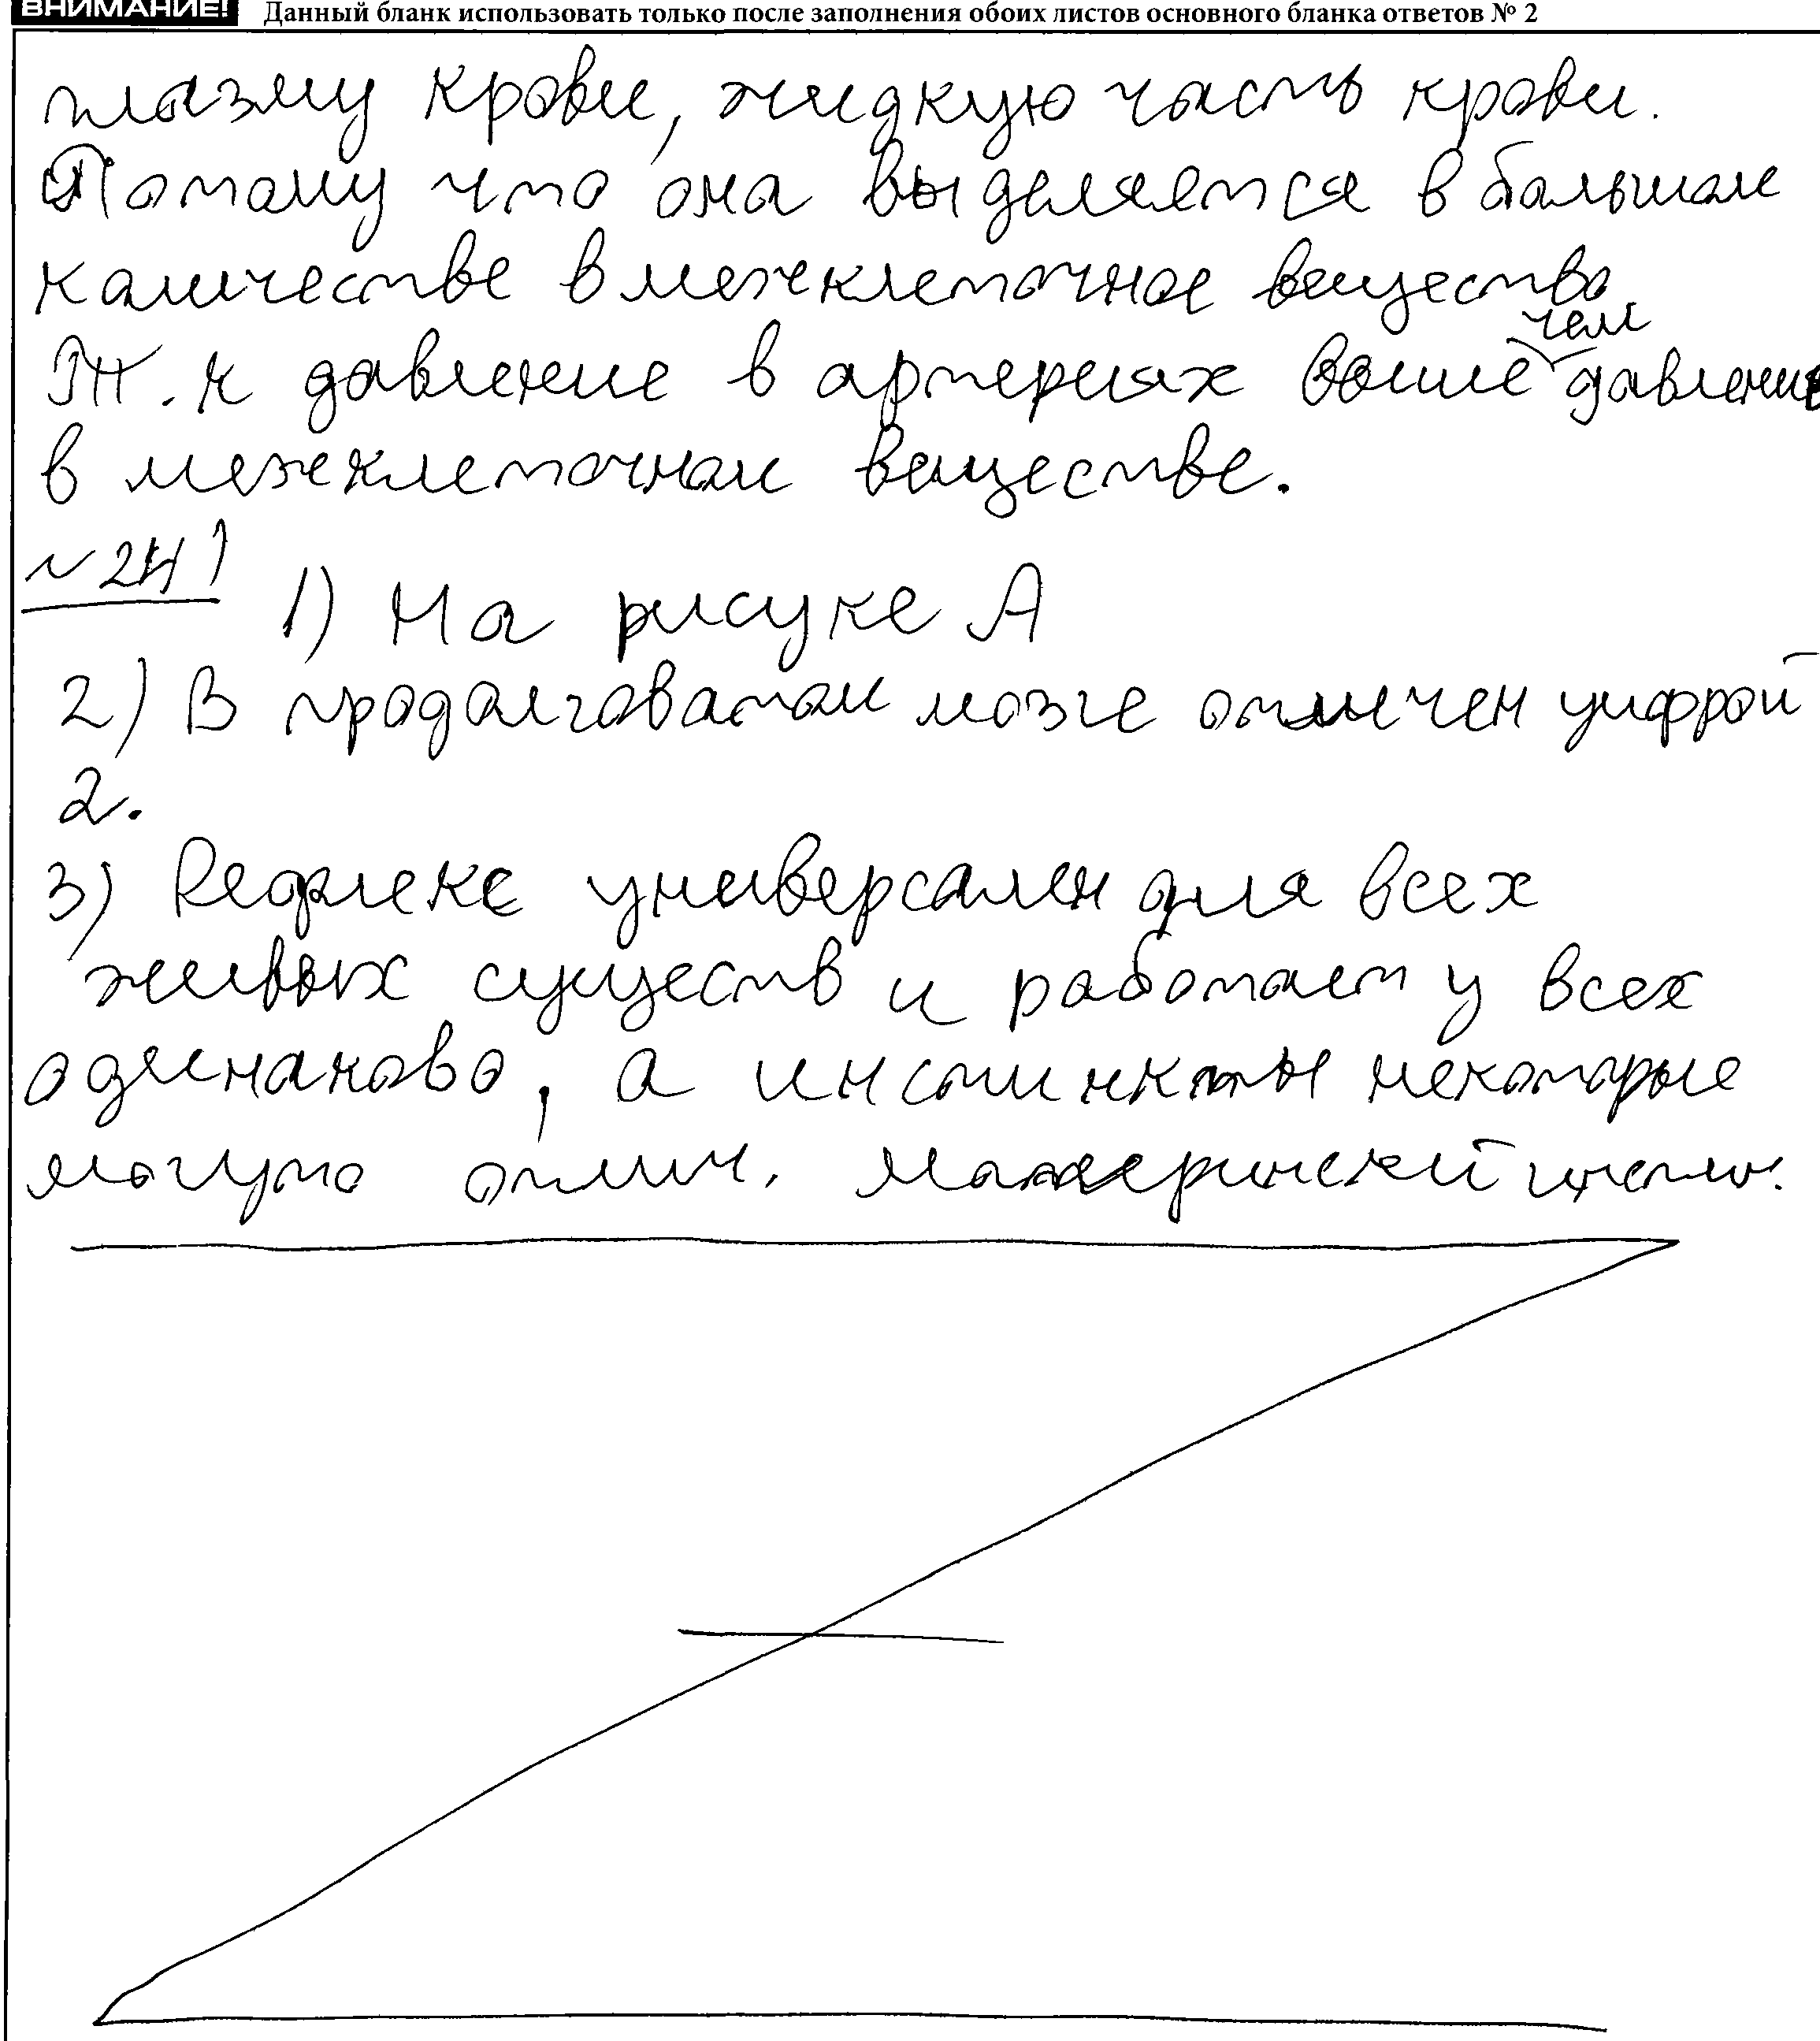 ВНИМАНИЕ! Данный бланк использовать только после заполнения обоих листов основного бланка ответов № 2
плазму крови, жидкую часть крови.
Потому что она выделяется в большом
количестве в межклеточное вещество.
Т.к давление в артериях выше чем давление
в межклеточном веществе.
№ 24 1) На рисуке А
2) В продолговатом мозге отмечен цифрой
2.
3) Рефлекс универсален для всех
живых существ и работает у всех
одинаково, а инстинкты некоторые
могут отлич. Материнский